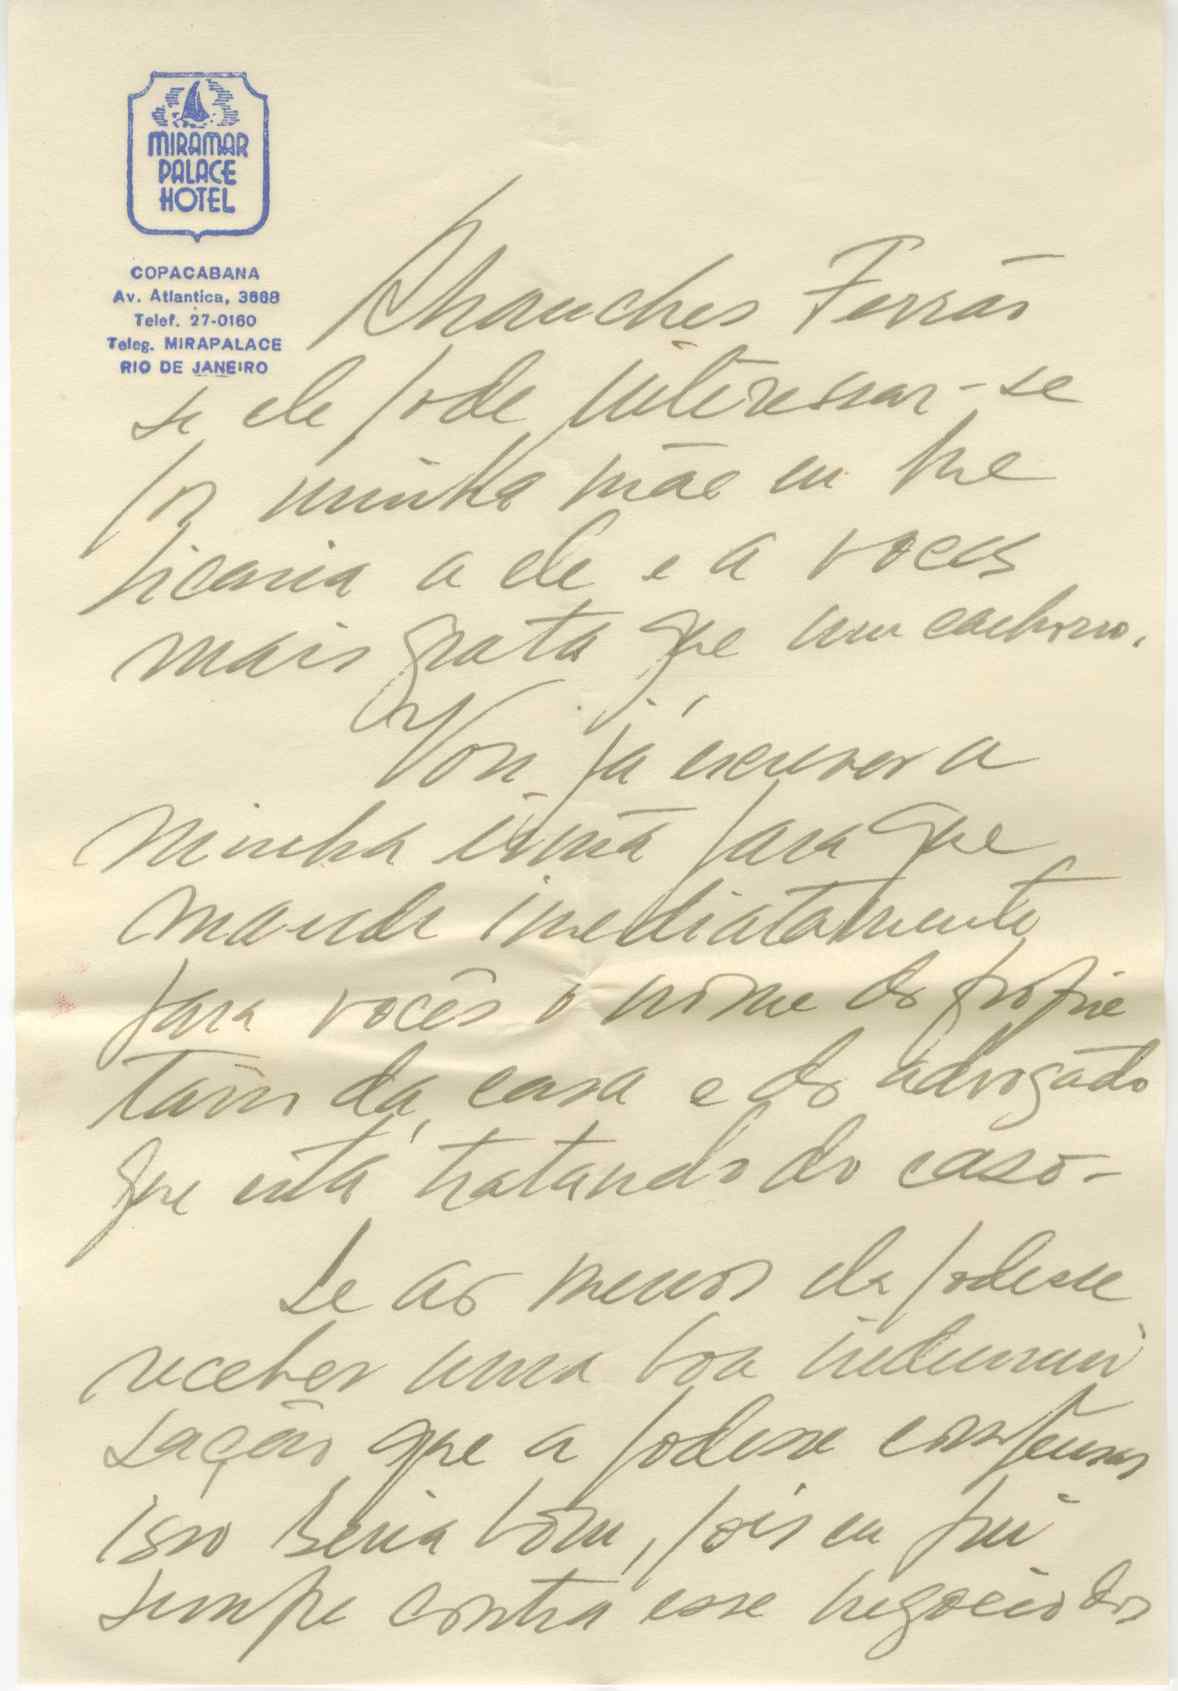 MIRAMAR
PALACE
HOTEL
COPACABANA
Av. Atlantica, 3668
Telef. 27-0160
Teleg. MIRAPALACE
RIO DE JANEIRO
Ferrás
se ele pode interessar-se
por minha mãe eu me
ficaria a ele e a voces
mais grata que um cachorro.
Vou já escrever a
minha irmã para que
mande imediatamente
para vocês o nome do proprie
tario da casa e do advogado
que está tratando do caso -
Se ao menos ela podesse
receber uma boa indemni
sação que a podesse compensar
isso seria bom, pois eu fui
sempre contra esse negocio dos